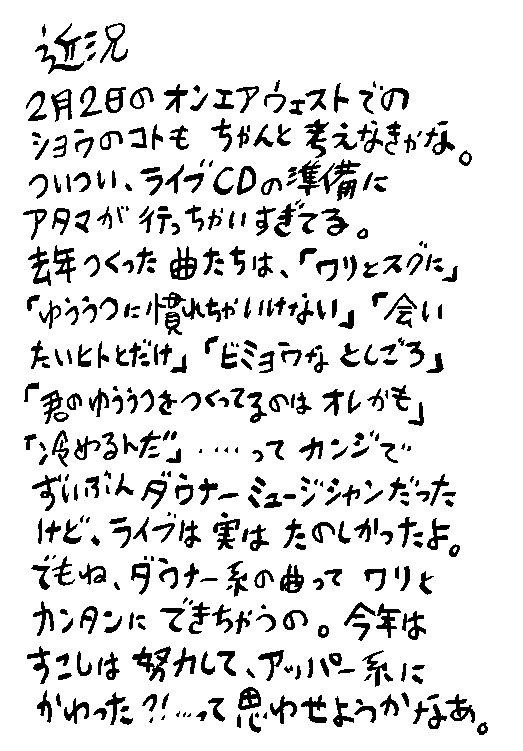 近況
2月2日のオンエアウェストでの
ショウのコトも ちゃんと 考えなきゃな。
ついつい、ライブCDの準備に
アタマが 行っちゃいすぎてる。
去年つくった 曲たちは、「ワリとスグに」
「ゆううつに慣れちゃいけない」「会い
たいヒトとだけ」「ビミョウな としごろ」
「君のゆううつをつくってるのは オレかも」
「冷めるんだ」‥‥って カンジで
ずいぶん ダウナーミュージシャンだった
けど、ライブは 実は たのしかったよ。
でもね、ダウナー系の曲って ワリと
カンタンに できちゃうの。今年は
すこしは 努力して、アッパー系に
かわった?!…って 思わせようかなあ。